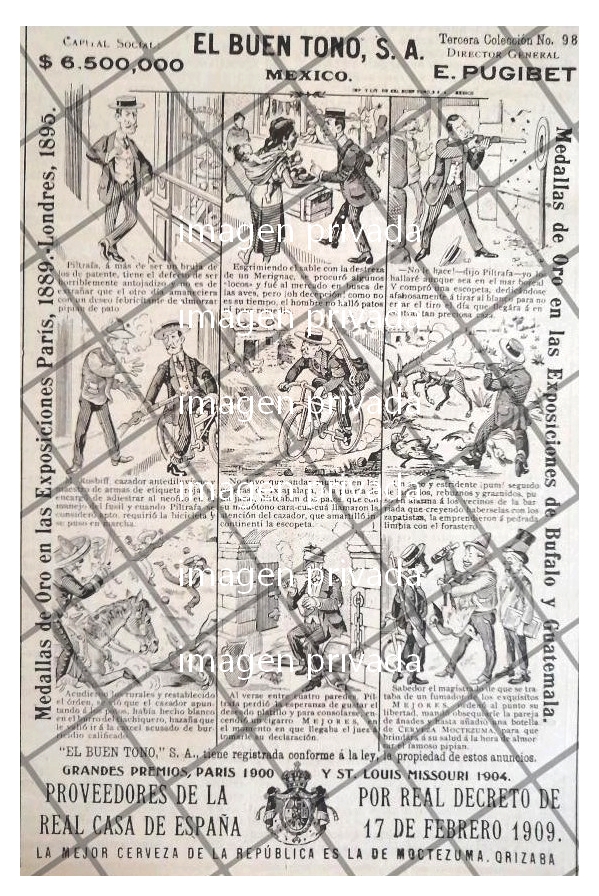 CAPITAL SOCIAL:
$ 6.500,000
EL BUEN TONO, S. A.
MEXICO.
Tercera Colección No. 98
DIRECTOR GENERAL
E. PUGIBET
Medallas de Oro en las Exposiciones París, 1889. Londres, 1895.
Medallas de Oro en las Exposiciones de Bufalo y Guatemala.
Piltrafa, á más de ser un bruja de
los de patente, tiene el defecto de ser
horriblemente antojadizo
extrañar que el otro día amaneciera
con un deseo febricitante de almorzar
pipián de pato.
Esgrimiendo el sable con la destreza
de un Merignac, se procuró algunos
«locos» y fué al mercado en busca de
las aves, pero ¡oh decepción! como no
es su tiempo, el hombre no halló patos
—No le hace!—dijo Piltrafa—yo los
hallaré aunque sea en el mar boreal
Y compró una escopeta, dedicándose
afanosamente á tirar al blanco para no
errar el tiro el día que llegara á en
tan preciosa caza.
cazador antediluviano
maestro de armas de etiqueta
encargó de adiestrar al neófito en el
manejo del fusil y cuando Piltrafa
consideró apto, requirió la bicicleta y
se puso en marcha.
monótono cara-cuá-cuá llamaron la
atención del cazador, que amartilló in
continenti la escopeta.
y estridente ¡pum! seguido
rebuznos y graznidos, pu
alarma á los vecinos de la bar
riada que creyendo habérselas con los
zapatistas, la emprendieron á pedrada
limpia con el forastero.
Acudieron los rurales y restablecido
el órden, se vió que el cazador apun
tando á los patos, había hecho blanco
en el burro del tlachiquero, hazaña que
le valió ir á la cárcel acusado de bur-
ricidio calificado.
Al verse entre cuatro paredes, Pil-
trafa perdió la esperanza de gustar el
deseado platillo y para consolarse, en
cendió un cigarro MEJORES,
el momento en que llegaba el juez
tomarle su declaración.
Sabedor el magistrado de que se tra
taba de un fumador de los exquisitos
MEJORES, cedió al punto su
libertad, mandó obsequiarle la pareja
de ánades y hasta añadió una botella
de CERVEZA MOCTEZUMA para que
brindara á su salud á la hora de almor
zar el famoso pipian.
"EL BUEN TONO," S. A., tiene registrada conforme á la ley, la propiedad de estos anuncios.
GRANDES PREMIOS, PARIS 1900 Y ST. LOUIS MISSOURI 1904.
PROVEEDORES DE LA
REAL CASA DE ESPAÑA
POR REAL DECRETO DE
17 DE FEBRERO 1909.
LA MEJOR CERVEZA DE LA REPÚBLICA ES LA DE MOCTEZUMA. ORIZABA
imagen privada
imagen privada
imagen privada
imagen privada
imagen privada
imagen privada